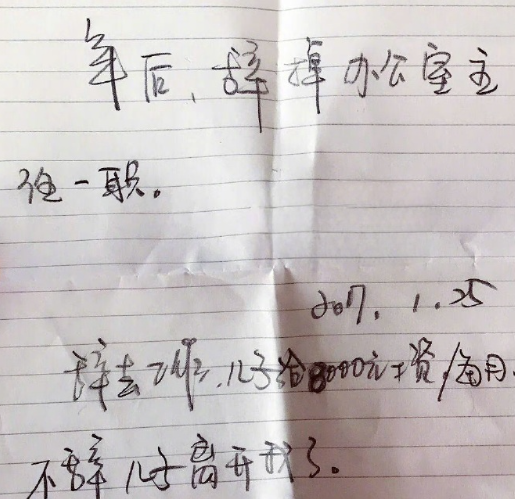 年后,辞掉办公室主
任一职。
2017.1.25
辞去工作,儿子给8000元工资/每月.
不辞儿子离开我了。